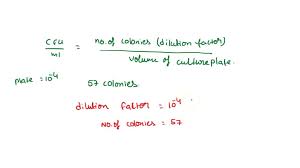 CFU/ml = no. of colonies (dilution factor) / volume of culture plate.
plate = 10^-4
57 colonies
dilution factor = 10^-4
No. of colonies = 57